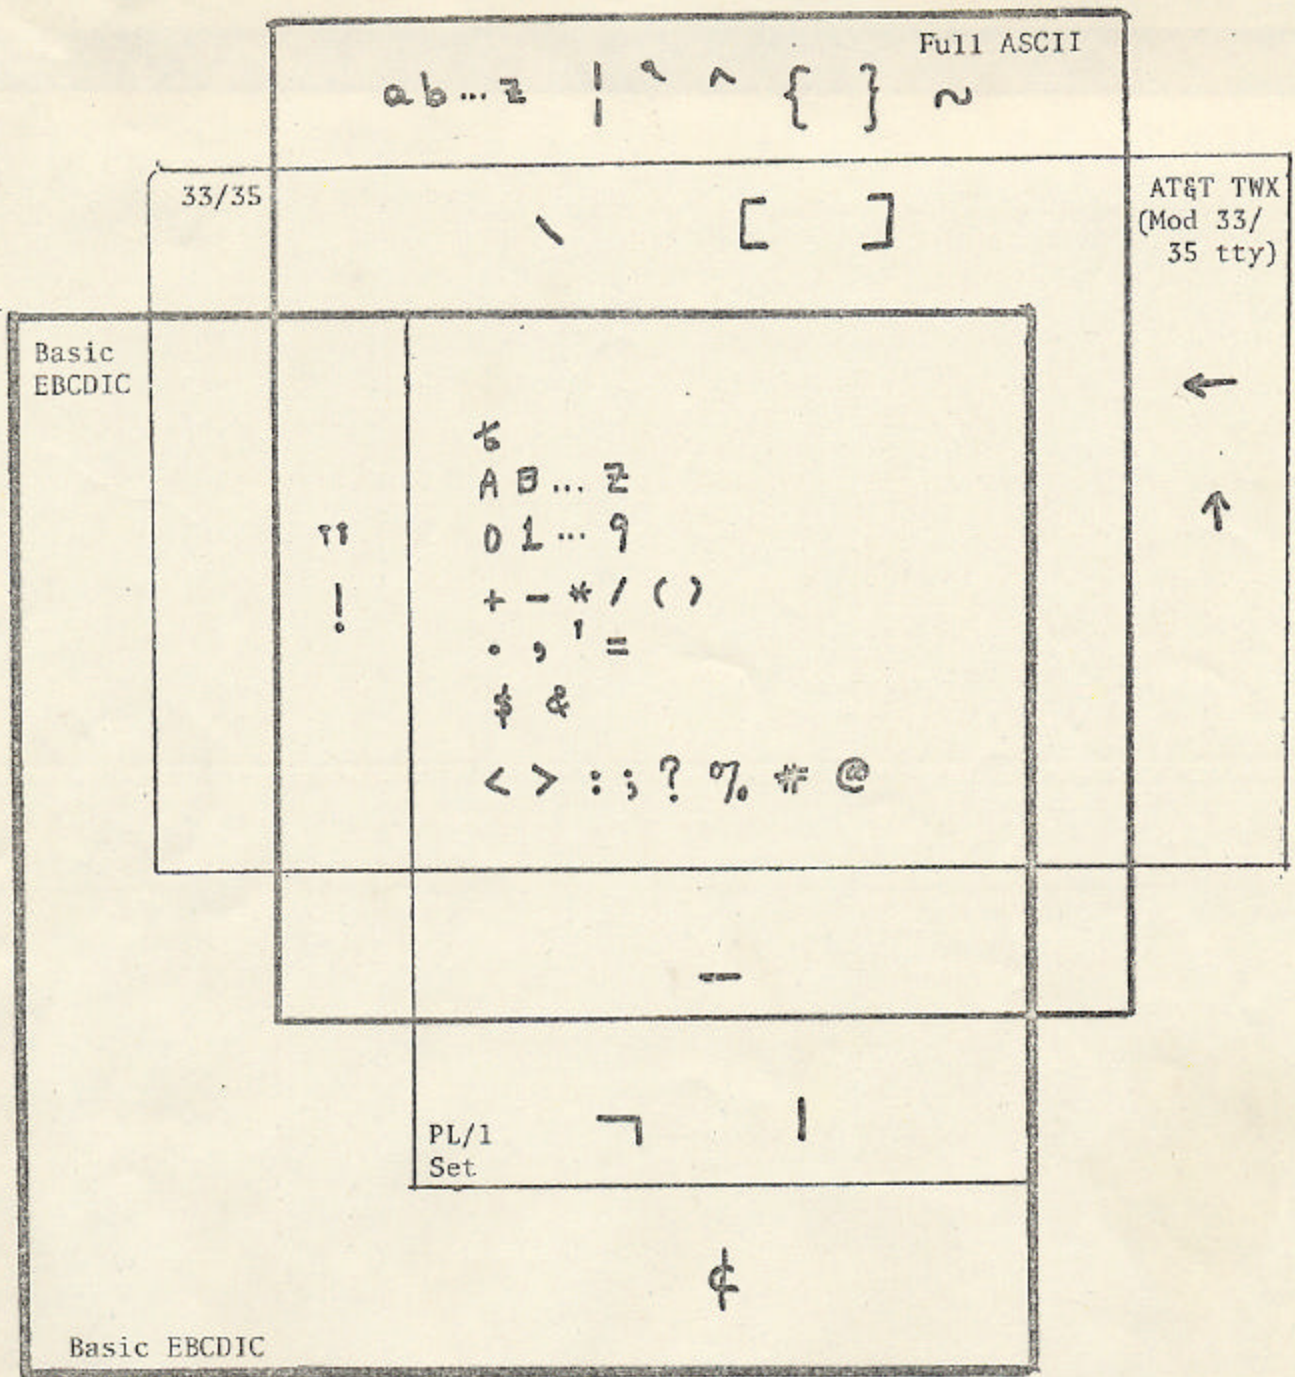 Full ASCII
ab...z ¦ ` ^ { } ~
33/35
\ [ ]
AT&T TWX
(Mod 33/
35 tty)
Basic
EBCDIC
←
↑
"
!
A B ... Z
0 1 ... 9
+ - * / ( )
. , ' =
$ &
< > : ; ? % # @
_
PL/1
Set
¬ |
¢
Basic EBCDIC